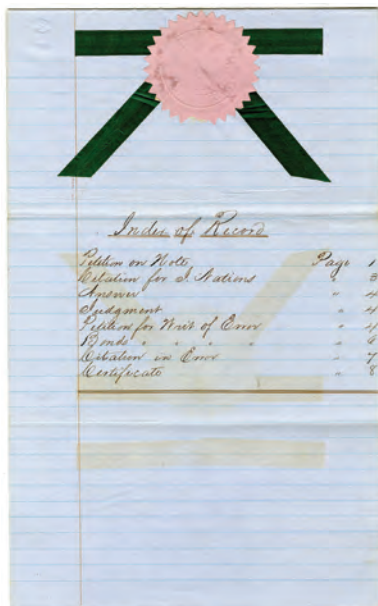 Index of Record
Petition on Note Page 1
Citation for I. Nations " 3
Answer " 4
Judgment " 4
Petition for Writ of Error " 4
Bonds " " " " " 6
Citation in Error " 7
Certificate " 8